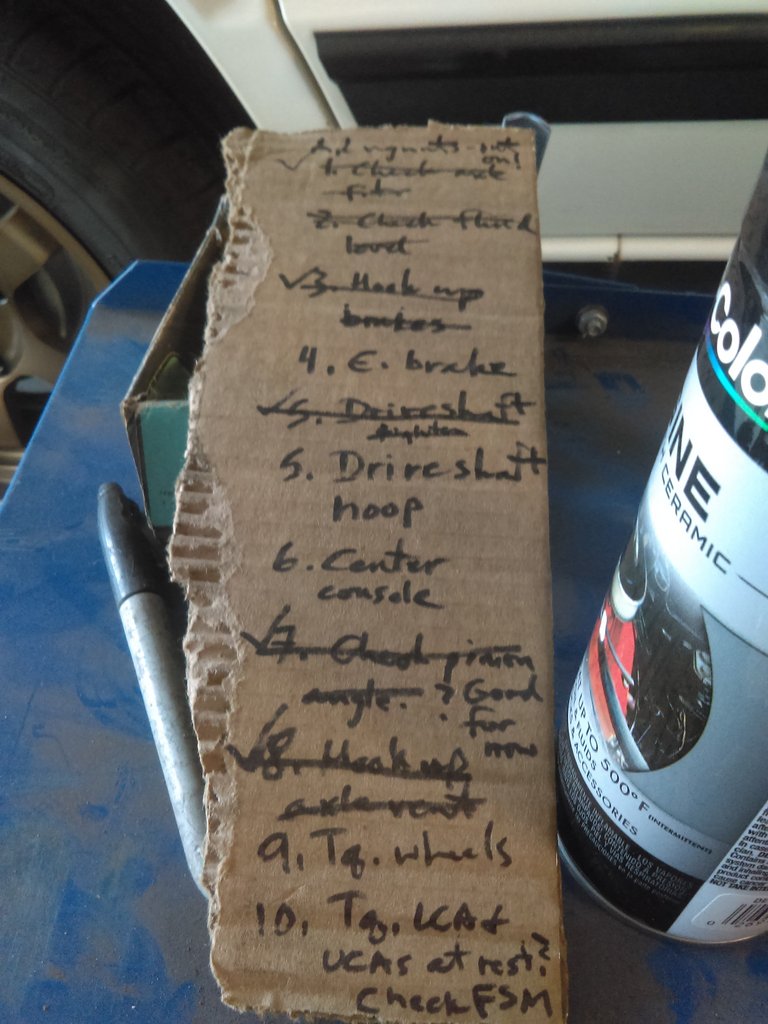 on!
1. Check axle
2. Check fluid
level
3. Hook up
brakes
4. E. brake
5. Driveshaft
tighten
5. Driveshaft
hoop
6. Center
console
7. Check pinion
angle. ? Good
for
now
8. Hook up
axle vent
9. Tq. wheels
10. Tq. LCA &
UCAs at rest?
Check FSM
Colo
INE
CERAMIC
UP TO 500° F (INTERMITTENT)
& FLUIDS
& ACCESSORIES